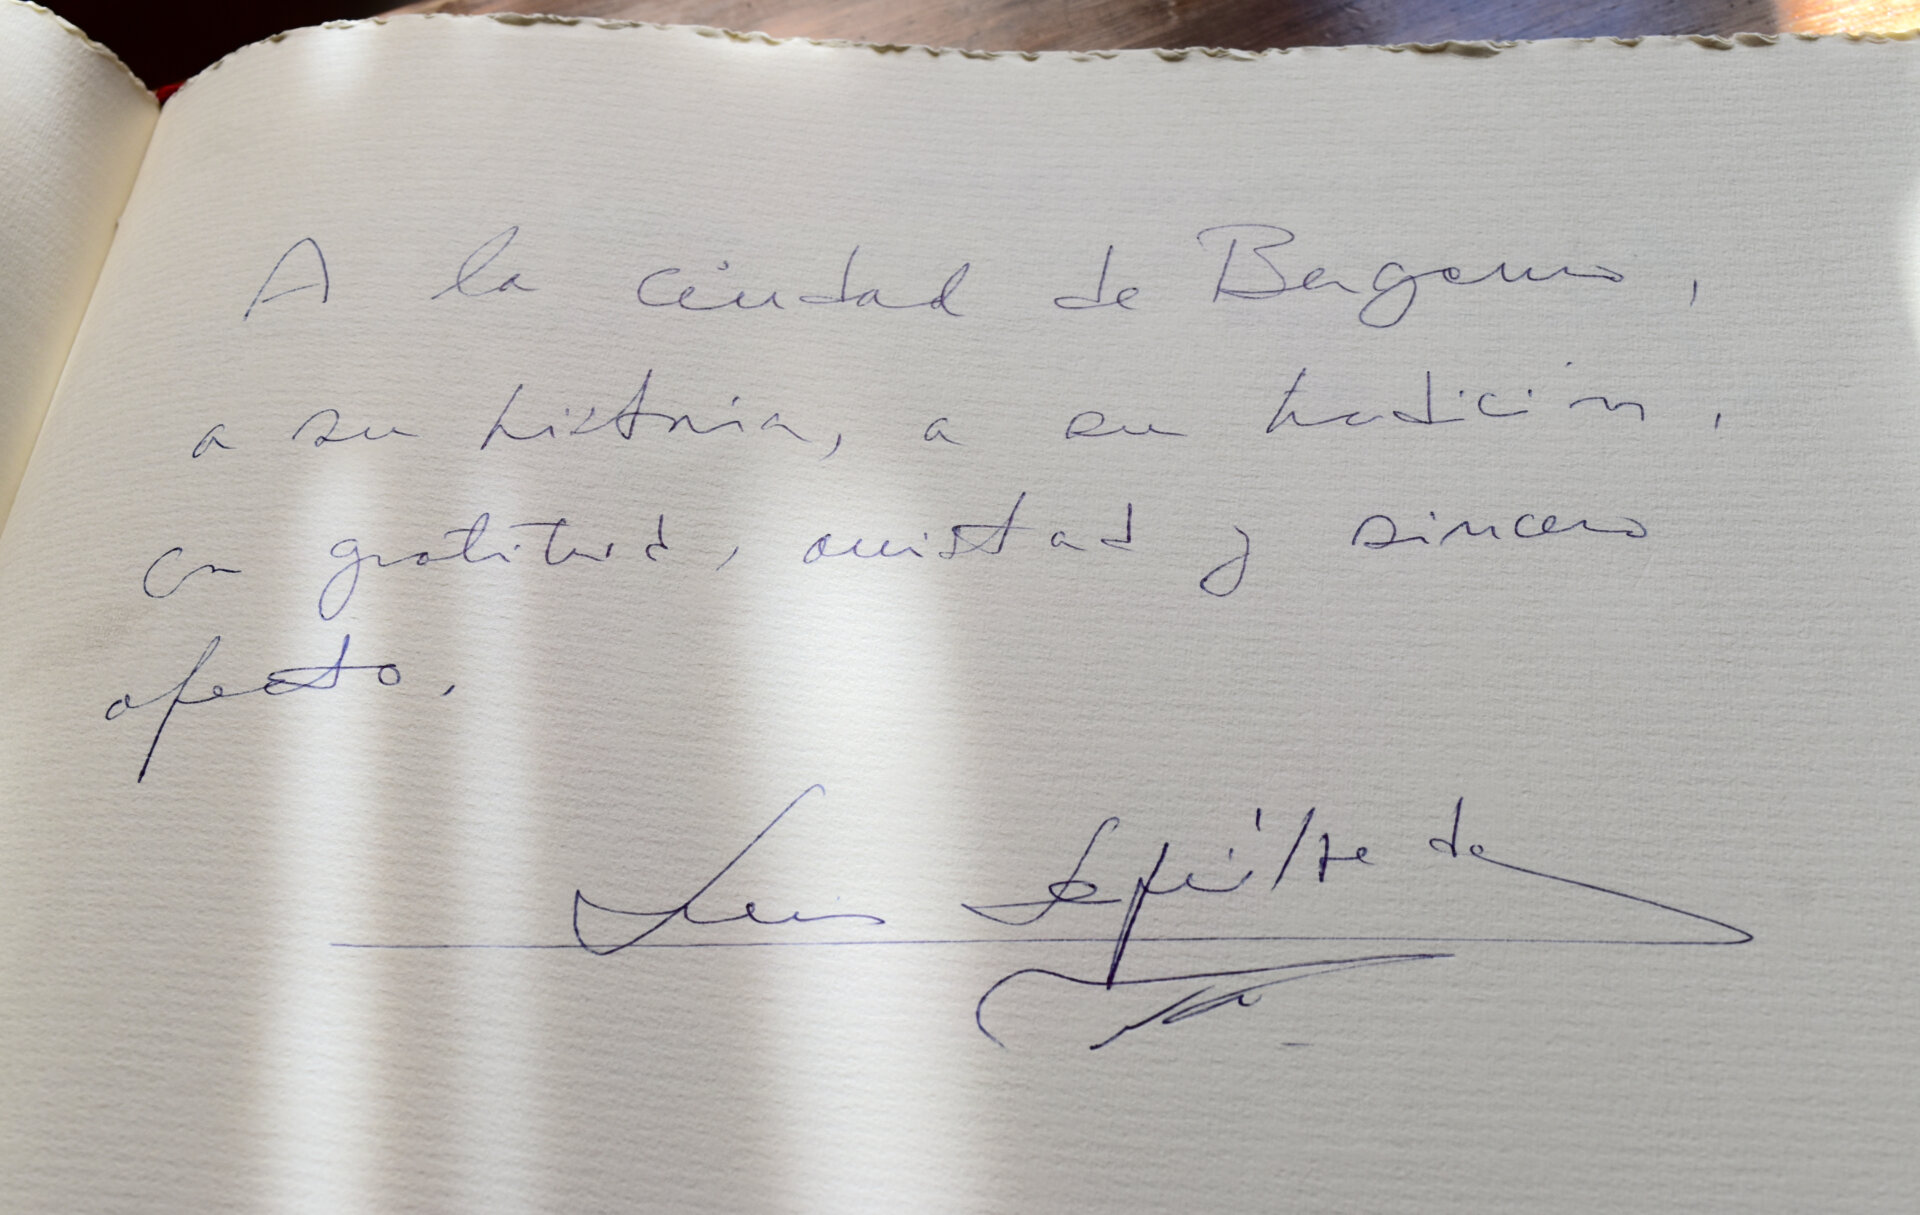 A la ciudad de Bergamo,
a su historia, a su tradición,
con gratitud, amistad y sincero
afecto,
Luis Sepúlveda